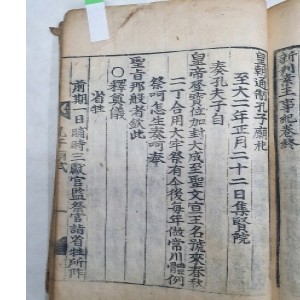 新刊素王事紀卷終
皇朝通制孔子廟祀
至大二年正月二十二日集賢院
奏孔夫子自
皇帝登寶位加封大成至聖文宣王名號來春秋
二丁合用大牢祭有今後每年做常川體例
祭呵怎生奏呵奉
聖旨那般者欽此
○釋奠儀
省牲
前期一日晡時三獻官監祭官諸省牲所阼